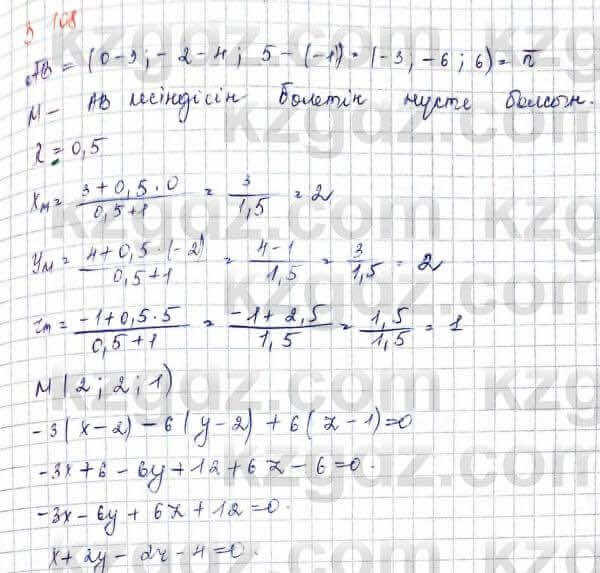 3 108
AB = (0-3; -2-4; 5-(-1)) = (-3; -6; 6) = n
M - AB кесіндісін бөлетін нүкте болсын.
λ = 0,5
Xм = 3+0,5·0 / 0,5+1 = 3 / 1,5 = 2
Yм = 4+0,5·(-2) / 0,5+1 = 4-1 / 1,5 = 3 / 1,5 = 2
Zм = -1+0,5·5 / 0,5+1 = -1+2,5 / 1,5 = 1,5 / 1,5 = 1
M(2; 2; 1)
-3(x-2) -6(y-2) +6(z-1)=0
-3x+6-6y+12+6z-6=0.
-3x-6y+6z+12=0.
x+2y-2z-4=0.
kzgdz.com